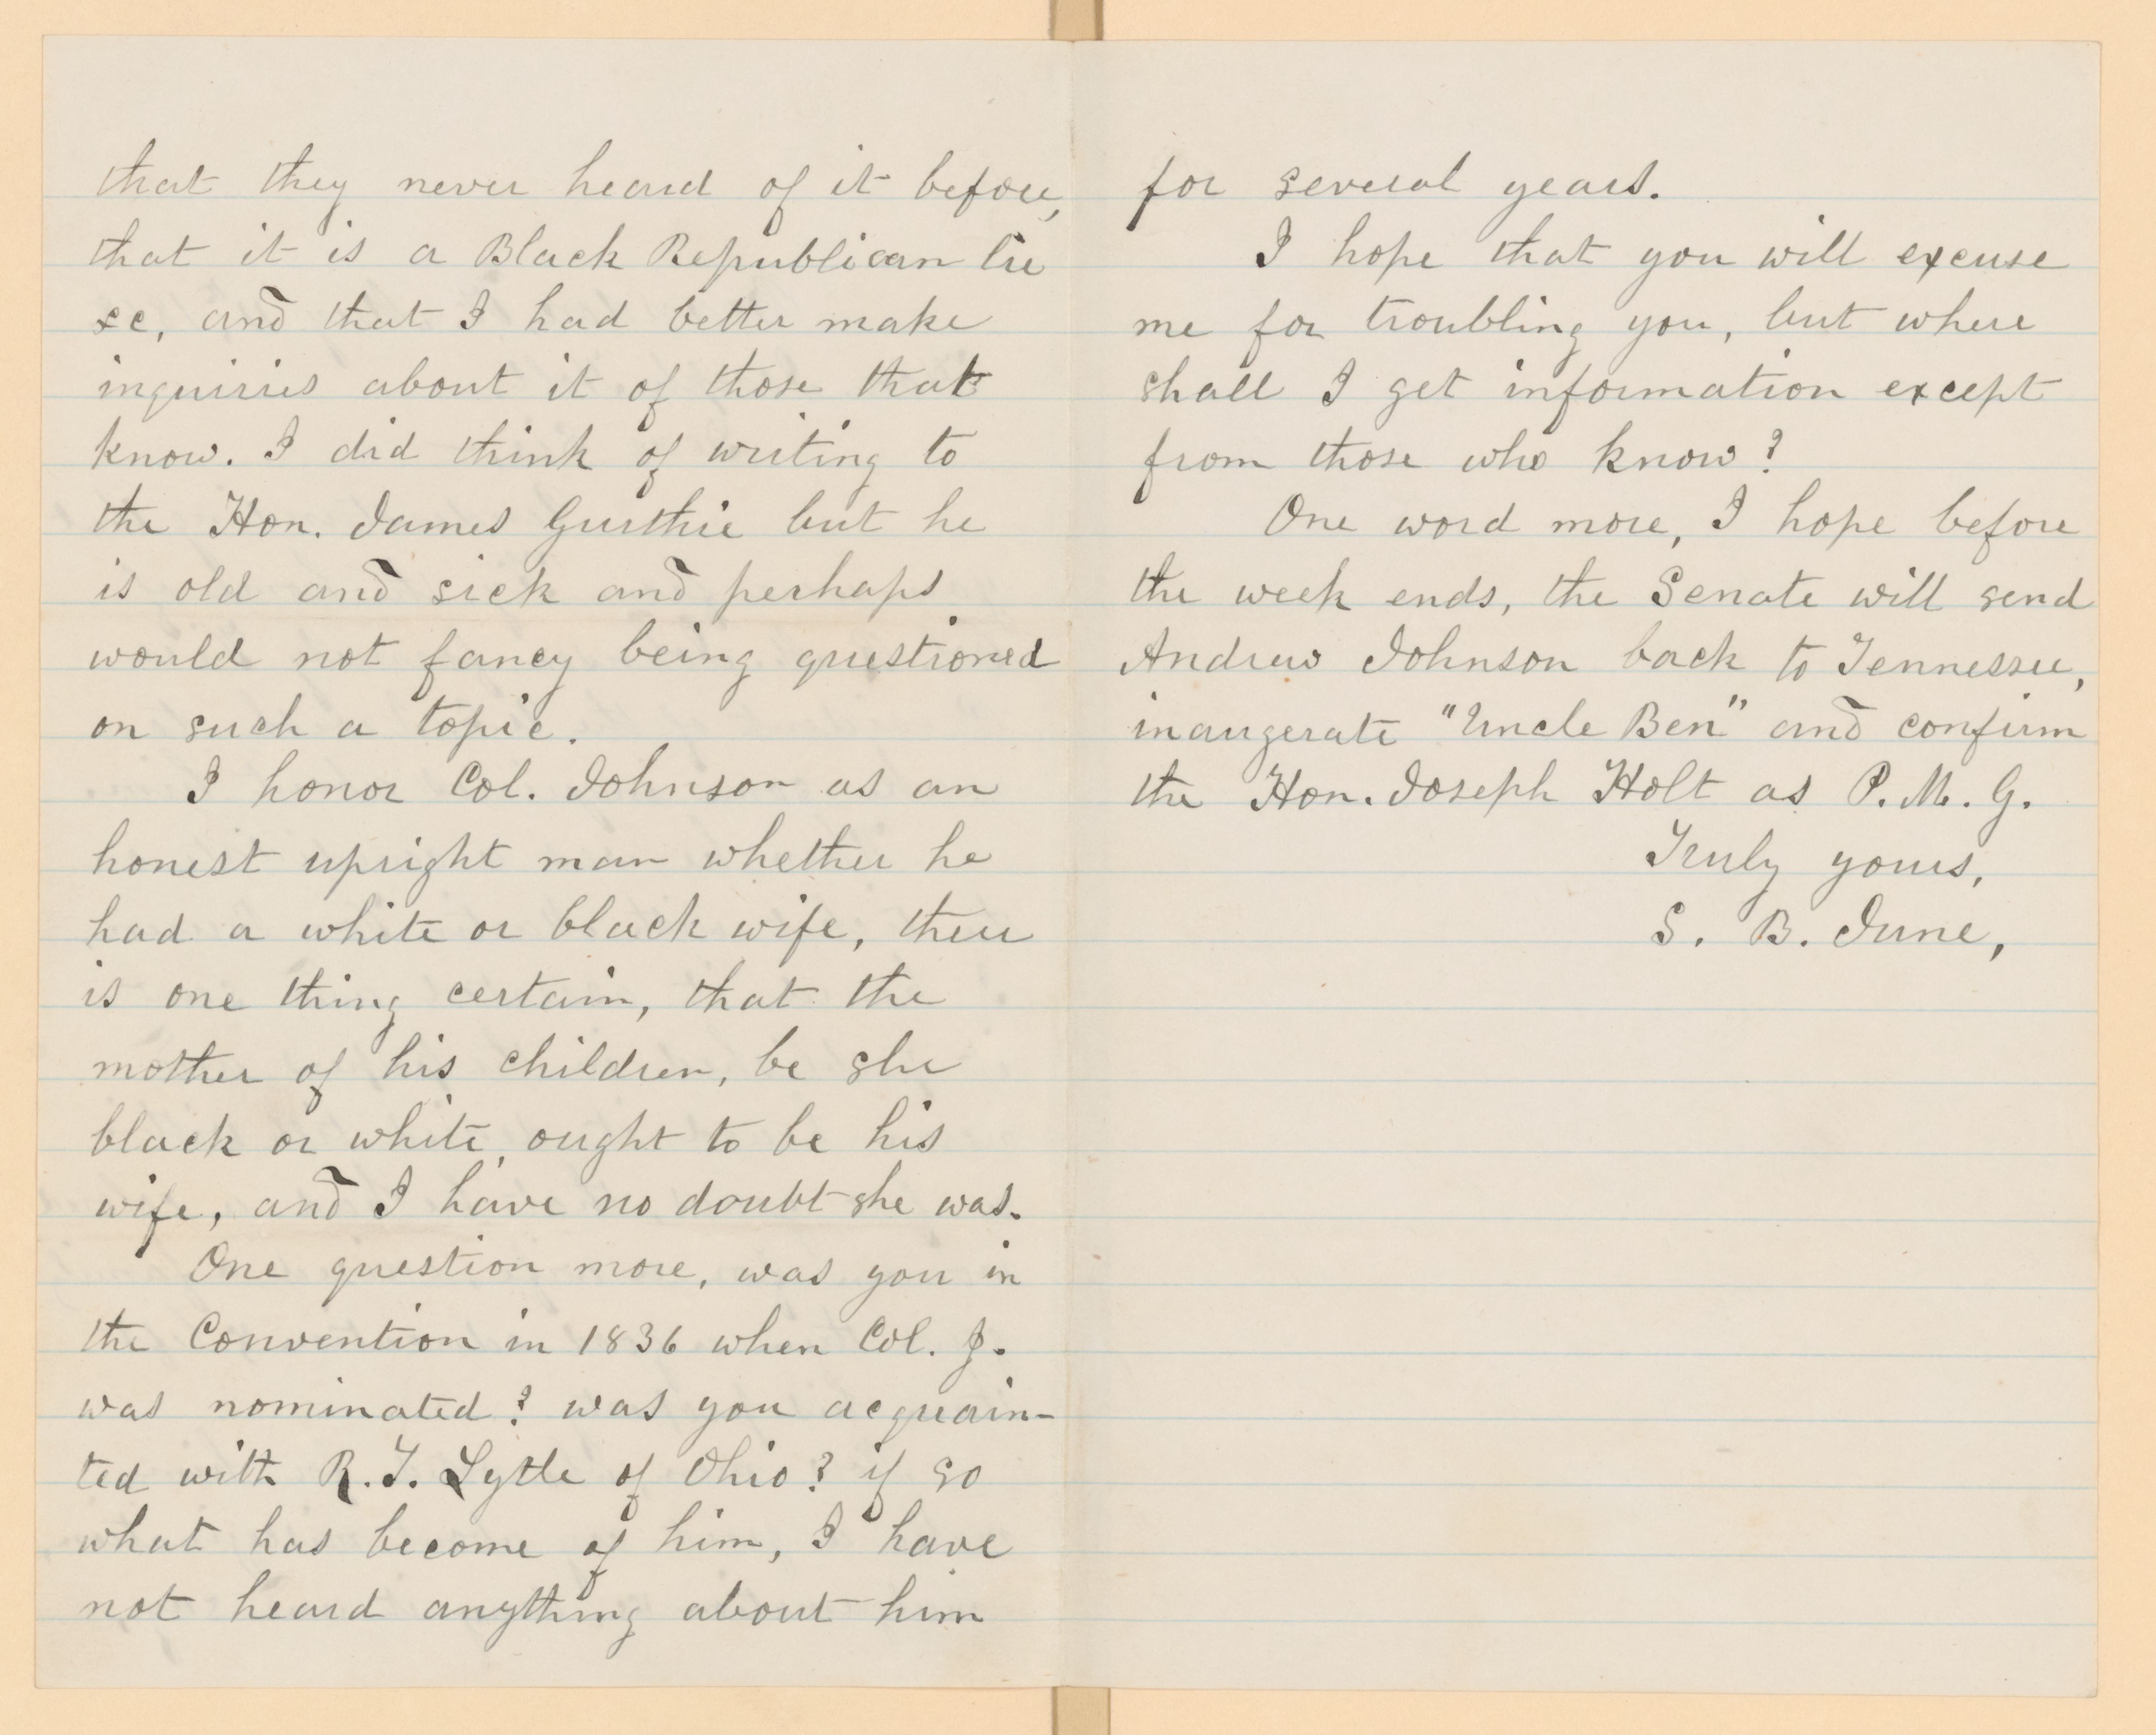 that they never heard of it before,
that it is a Black Republican lie
&c, and that I had better make
inquiries about it of those that
know. I did think of writing to
the Hon. James Guthrie but he
is old and sick and perhaps
would not fancy being questioned
on such a topic.
I honor Col. Johnson as an
honest upright man whether he
had a white or black wife, there
is one thing certain, that the
mother of his children, be she
black or white, ought to be his
wife, and I have no doubt she was.
One question more, was you in
the Convention in 1836 when Col. J.
was nominated? was you acquain-
ted with R. T. Lytle of Ohio? if so
what has become of him, I have
not heard anything about him
for several years.
I hope that you will excuse
me for troubling you, but where
shall I get information except
from those who know?
One word more, I hope before
the week ends, the Senate will send
Andrew Johnson back to Tennessee,
inaugerate "Uncle Ben" and confirm
the Hon. Joseph Holt as P. M. G.
Truly yours,
S. B. June,